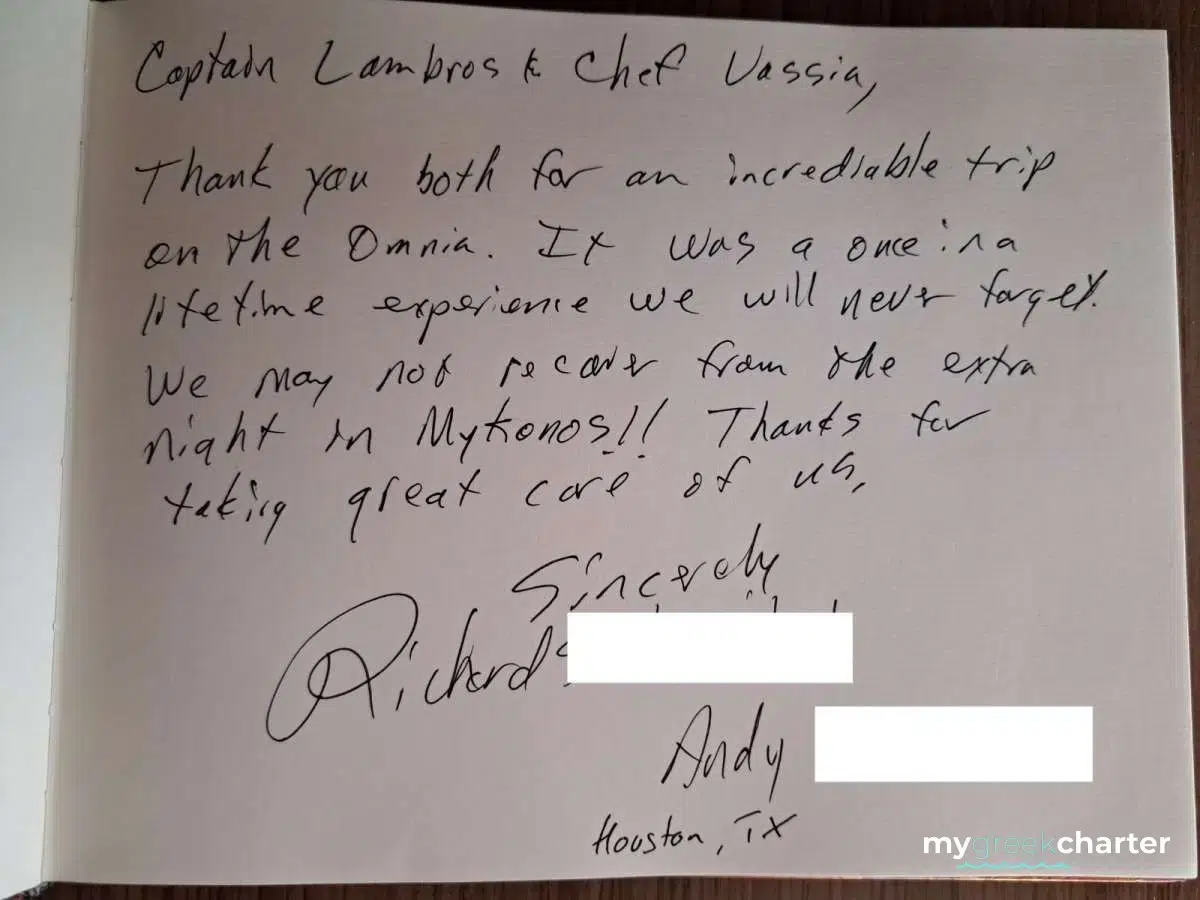 Captain Lambros & Chef Vassia,
Thank you both for an incrediable trip
on the Omnia. It was a once in a
lifetime experience we will never forget.
We may not recover from the extra
night in Mykonos!! Thanks for
taking great care of us,
Sincerely
Richard
Andy
Houston, TX
mygreekcharter